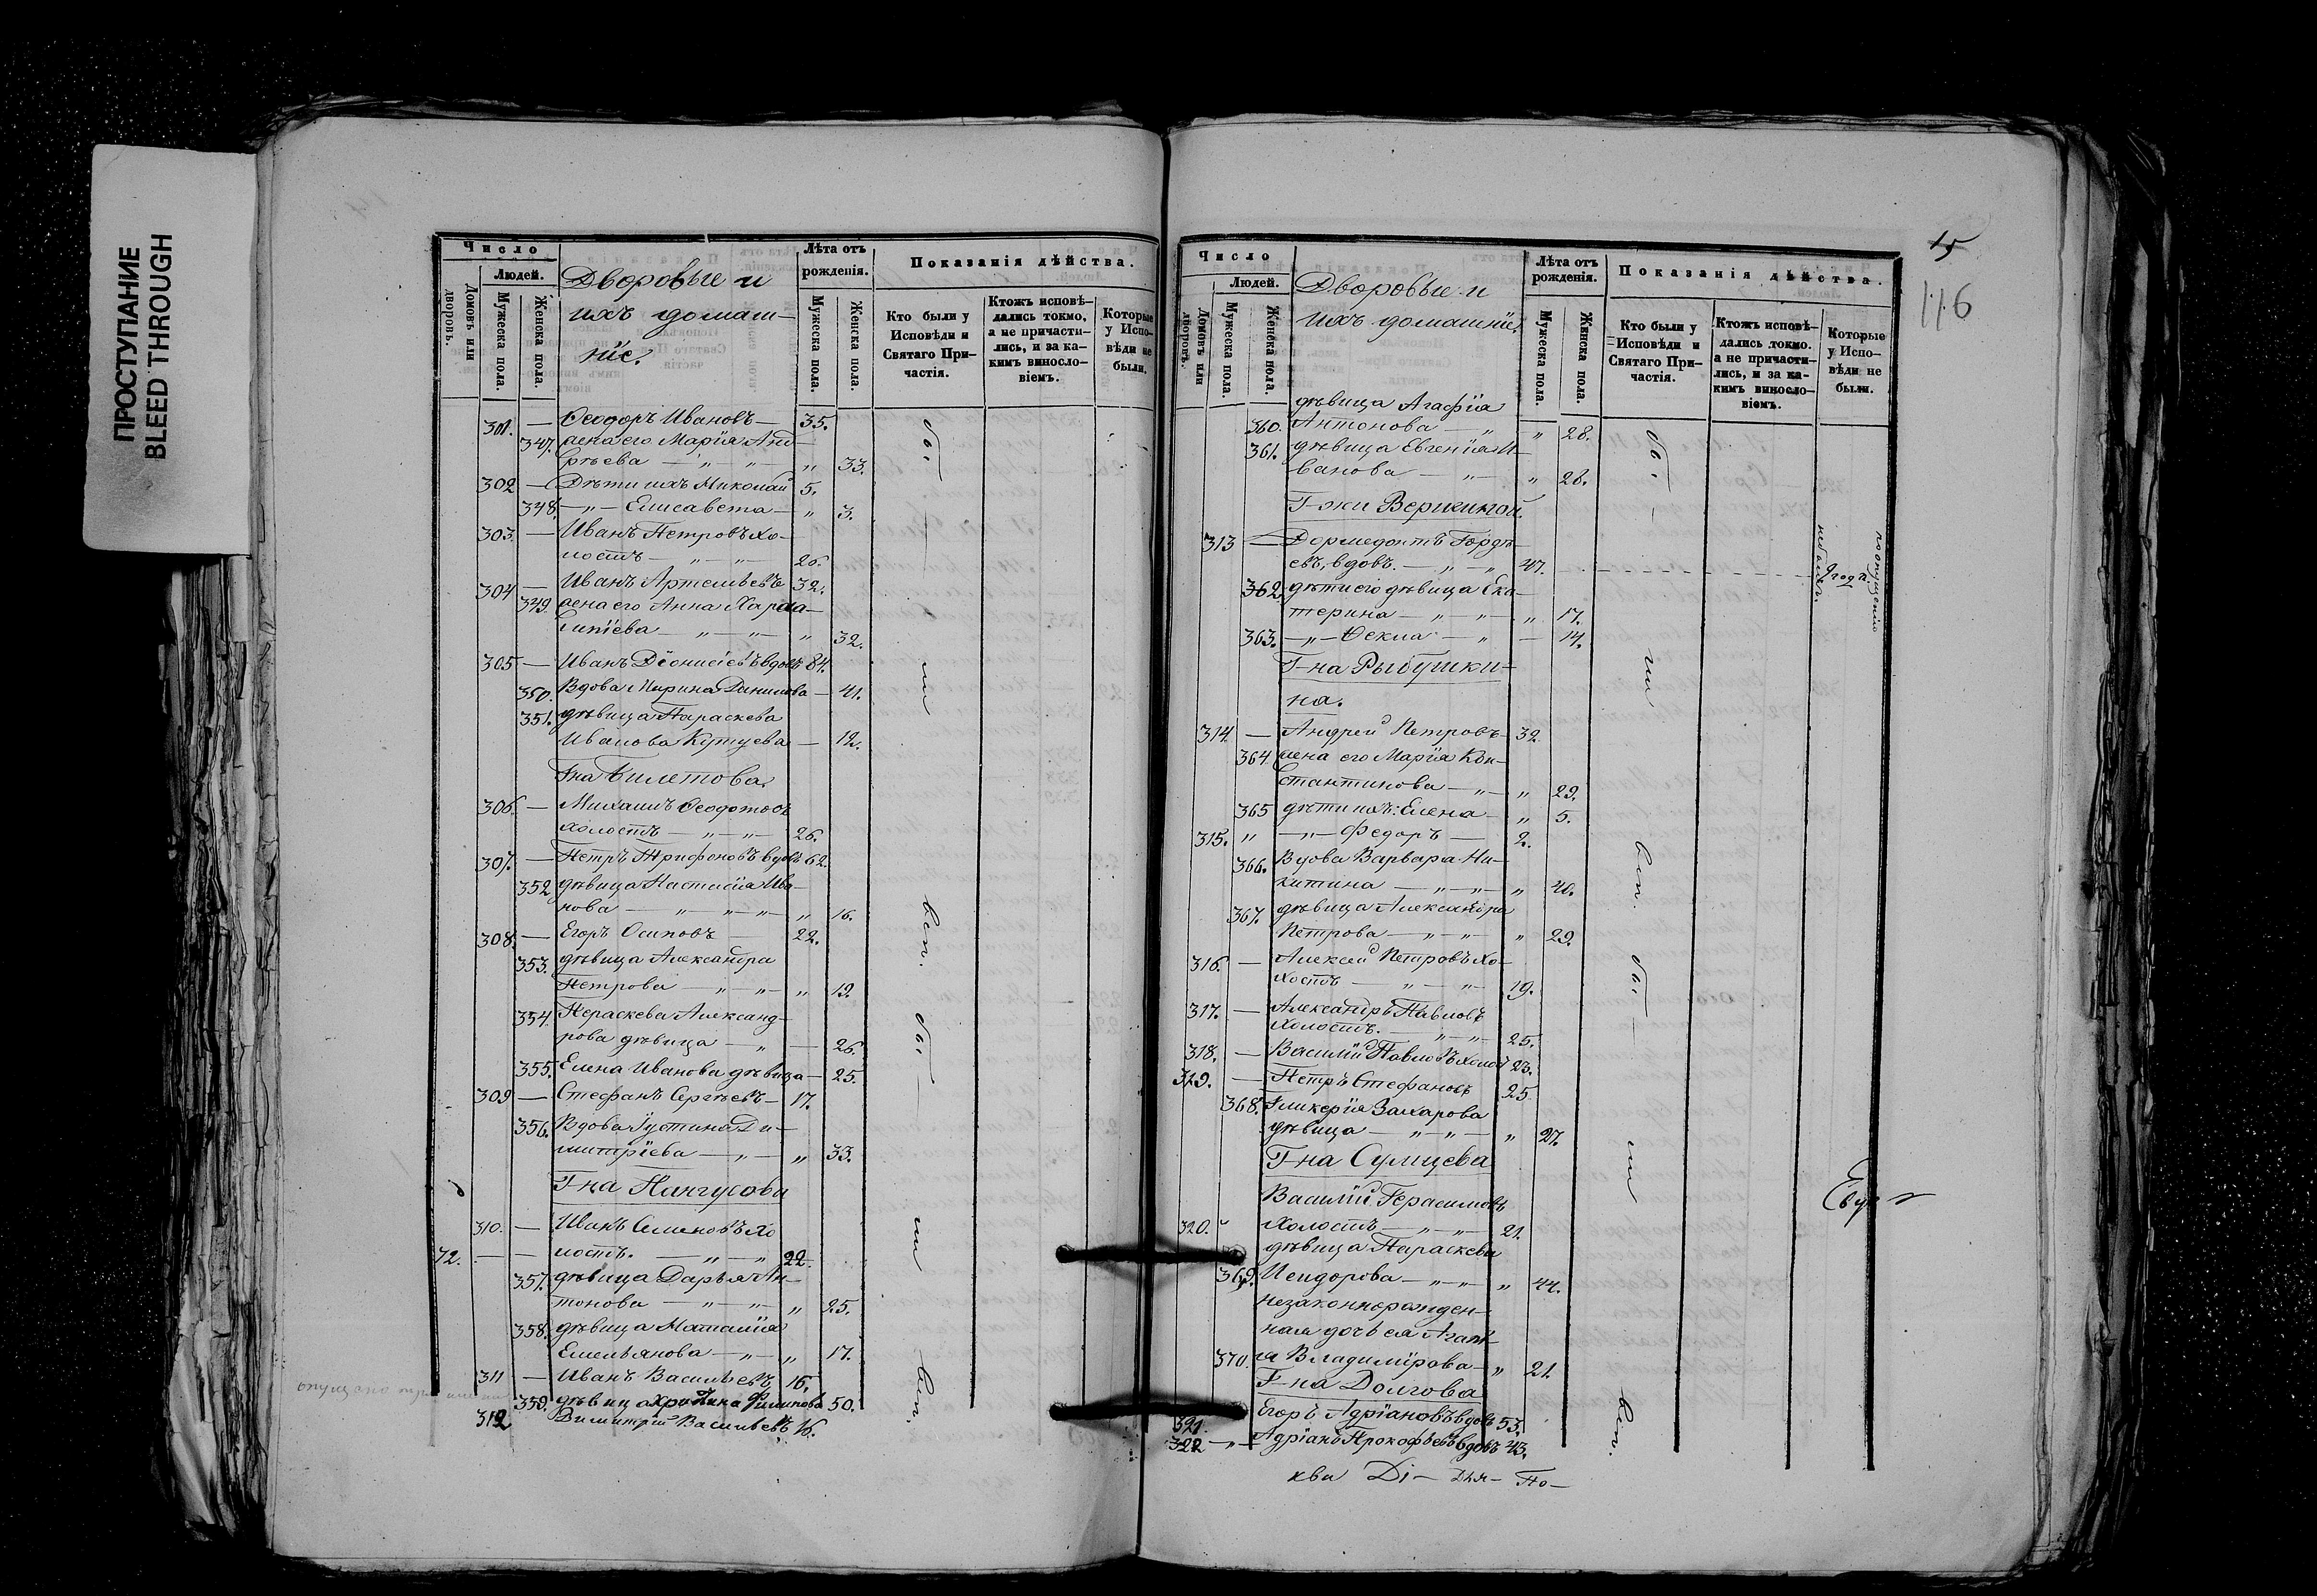 ПРОСТУПАНИЕ
BLEED THROUGH
Число
Людей.
Домовъ или дворовъ.
Мужеска пола.
Женска пола.
Дворовые и
ихъ домаш-
ніе.
Лѣта отъ рожденія.
Мужеска пола.
Женска пола.
Показанія дѣйства.
Кто были у Исповѣди и Святаго При-частія.
Ктожъ исповѣ-дались токмо, а не причасти-лись, и за ка-кимъ винословіемъ.
Которые у Испо-вѣди не были.
301. — Ѳеодоръ Ивановъ — 35.
347. жена его Марія Анд-
рѣева — „ — „ — „ 33.
302 — Дѣти ихъ Николай 5.
348. — „ — Елисавета — „ 3.
303. — Иванъ Петровъ хо-
лостъ — „ — „ — 26.
304 — Иванъ Артемьевъ 32.
349. жена его Анна Харла-
мпіева — „ — „ — „ 32.
305 — Иванъ Діонисіевъ вдовъ 84.
350. Вдова Марина Данилова — 41.
351. дѣвица Параскева
Иванова — 12.
Г-на Билетова.
306. — Михаилъ Ѳеодотовъ
холостъ — „ — „ — 26.
307. — Петръ Трифоновъ вдовъ 62.
352 дѣвица Настасія Ива-
нова — „ — „ — „ 16.
308. — Егоръ Осиповъ — 22.
353. дѣвица Александра
Петрова — „ — „ — „ 19.
354. Параскева Александ-
рова дѣвица — „ — 26.
355. Елена Иванова дѣвица — 25.
309 — Стефанъ Сергѣевъ — 17.
356. Вдова Іустина Ди-
митріева — „ — „ 33.
Г-на
310. — Иванъ Семеновъ хо
72. — — лостъ. — „ — „ 22.
357. дѣвица Дарья Ан-
тонова — „ — „ — „ 25.
358. дѣвица Наталія
Емельянова — „ — „ 17.
311 — Иванъ Васильевъ 16.
359. дѣвица Филипова 50.
312 Димитрій Васильевъ 16.
бы-
ли
исп.
бы-
ли
исп.
15
116
Число
Людей.
Домовъ или дворовъ.
Мужеска пола.
Женска пола.
Дворовые и
ихъ домашніе.
Лѣта отъ рожденія.
Мужеска пола.
Женска пола.
Показанія дѣйства.
Кто были у Исповѣди и Святаго При-частія.
Ктожъ исповѣ-дались токмо. а не причасти-лись, и за ка-кимъ винословіемъ.
Которые у Испо-вѣди не были.
дѣвица Агафія
360. Антонова — „ — „ 28.
361. дѣвица Евгенія И-
ванова — „ — „ 28.
Г-жи Веригиной.
313 — Дормедонтъ Гордѣ-
евъ, вдовъ. — „ — „ 47.
362. дѣти его дѣвица Ека-
терина — „ — „ — „ 17.
363. — „ — Ѳекла — „ — 14.
Г-на Рыбушки-
на.
314. — Андрей Петровъ — 32
364 жена его Марія Кон-
стантинова — „ — „ 29.
365 дѣти ихъ: Елена — „ 5.
315. „ — „ — Федоръ — 2.
366. Вдова Варвара Ни-
китина — „ — „ — „ 40.
367. дѣвица Александра
Петрова — „ — „ — „ 29.
316. — Алексѣй Петровъ хо-
лостъ — „ — „ — 19.
317. — Александръ Павловъ
холостъ. — „ — „ — 25.
318. — Василій Павловъ холос 23.
319. — Петръ Стефановъ 25
368. Гликерія Захарова
дѣвица — „ — „ — „ 27.
Г-на Сумцева
Василій Герасимовъ
320. „ холостъ — „ — „ — 21.
дѣвица Параскева
369. Исидорова — „ — „ — „ 44.
незаконнорожден-
ная дочь ея Агаѳі-
370. я Владимірова — „ 21.
Г-на Долгова
321. Егоръ Адріановъ вдовъ 53.
322 — „ — Адріанъ Прокофьевъ вдовъ 43.
ли
исп.
бы-
ли
исп.
2 года
не былъ.
по опущенію
ква Ді- Дья- По-